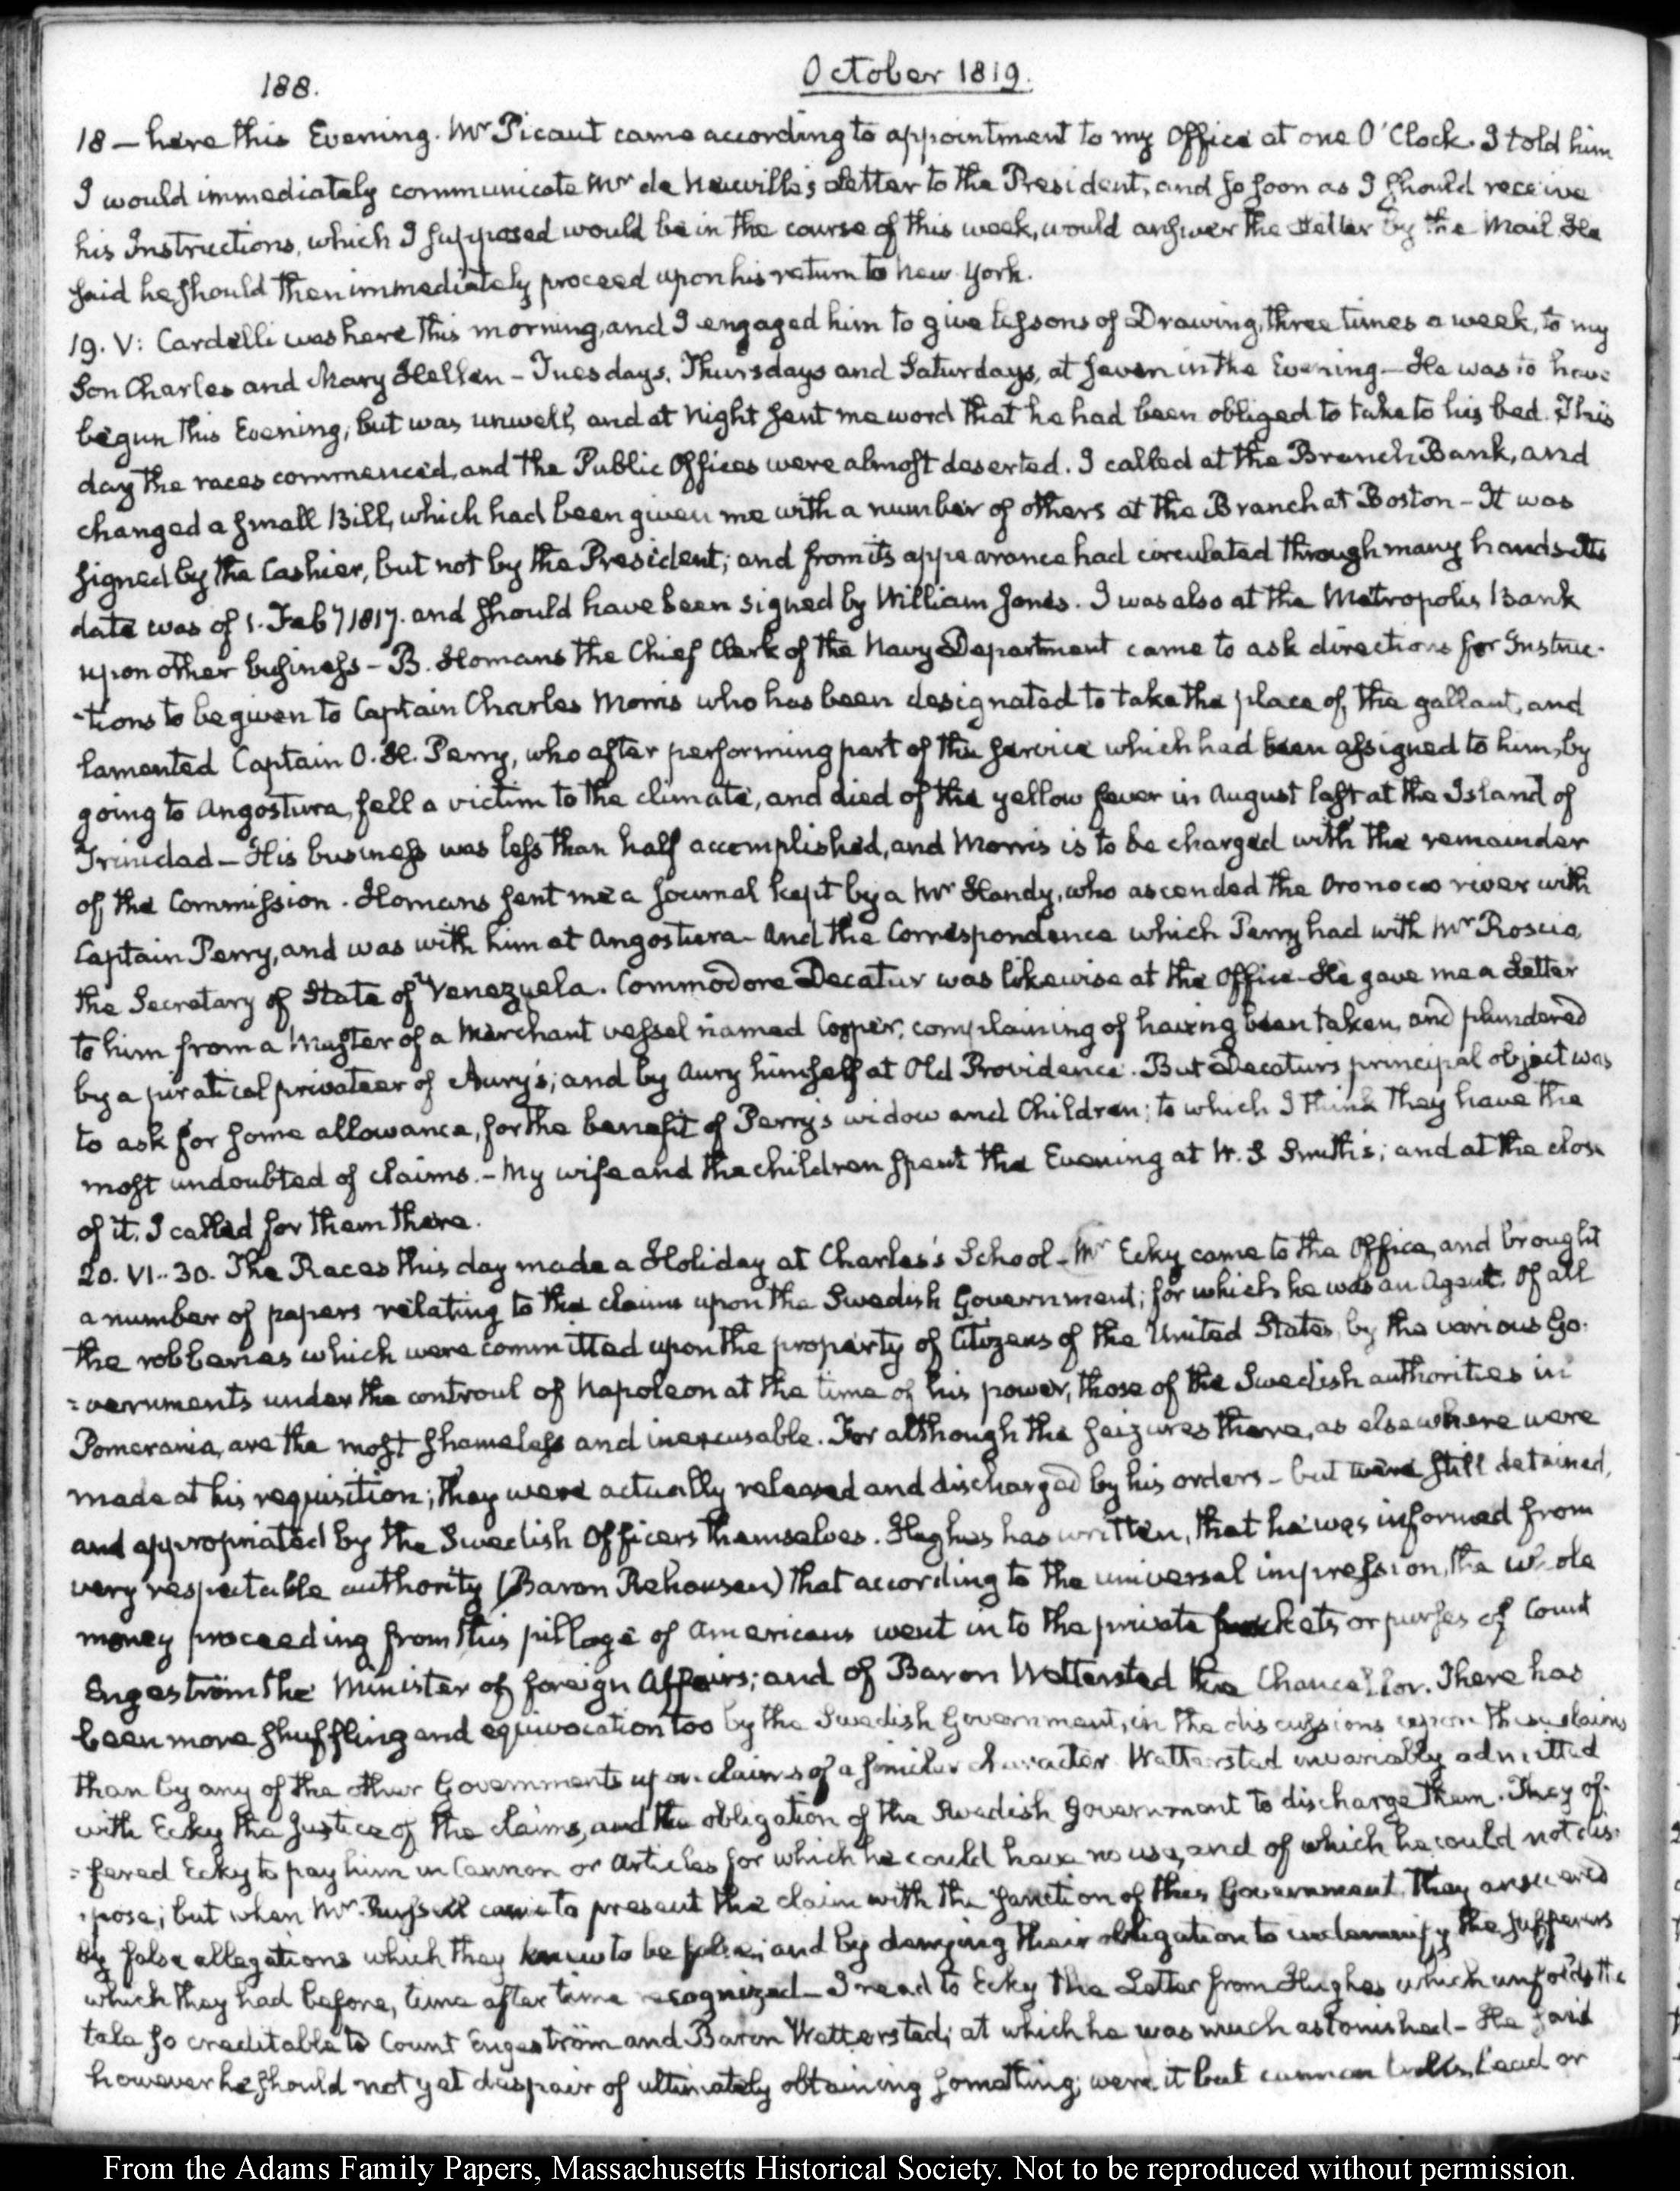 188.
October 1819.
18 — here this Evening. Mr Picaut came according to appointment to my Office at one O'Clock. I told him
I would immediately communicate Mr de Neuville's Letter to the President, and so soon as I should receive
his Instructions, which I supposed would be in the course of this week, would answer the Letter by the Mail. He
said he should then immediately proceed upon his return to New York.
19. V: Cardelli was here this morning, and I engaged him to give lessons of Drawing, three times a week, to my
Son Charles and Mary Hellen — Tuesdays, Thursdays and Saturdays, at seven in the Evening — He was to have
begun this Evening, but was unwell, and at Night sent me word that he had been obliged to take to his bed. This
day the races commenced, and the Public Offices were almost deserted. I called at the Branch Bank, and
changed a small Bill, which had been given me with a number of others at the Branch at Boston — It was
signed by the Cashier, but not by the President; and from its appearance had circulated through many hands — Its
date was of 1. Feby 1817. and should have been signed by William Jones. I was also at the Metropolis Bank
upon other business — B. Homans the Chief Clerk of the Navy Department came to ask directions for Instruc-
-tions to be given to Captain Charles Morris who has been designated to take the place of the gallant, and
lamented Captain O. H. Perry, who after performing part of the service which had been assigned to him, by
going to Angostura, fell a victim to the climate, and died of the yellow fever in August last at the Island of
Trinidad — His business was less than half accomplished, and Morris is to be charged with the remainder
of the Commission. Homans sent me a Journal kept by a Mr Handy, who ascended the Oronoco river with
Captain Perry, and was with him at Angostura — And the Correspondence which Perry had with Mr Roscio,
the Secretary of State of Venezuela. Commodore Decatur was likewise at the Office — He gave me a Letter
to him from a Master of a Merchant vessel named Cosper, complaining of having been taken, and plundered
by a piratical privateer of Aury's; and by Aury himself at Old Providence. But Decatur's principal object was
to ask for some allowance, for the benefit of Perry's widow and Children; to which I think they have the
most undoubted of claims. — My wife and the children spent the Evening at W. S Smith's; and at the close
of it, I called for them there.
20. VI..30. The Races this day made a Holiday at Charles's School — Mr Ecky came to the Office, and brought
a number of papers relating to the claims upon the Swedish Government; for which he was an Agent. Of all
the robberies which were committed upon the property of Citizens of the United States, by the various Go-
=vernments under the controul of Napoleon at the time of his power, those of the Swedish authorities in
Pomerania, are the most shameless and inexcusable. For although the seizures there, as elsewhere were
made at his requisition; they were actually released and discharged by his orders — but were still detained,
and appropriated by the Swedish Officers themselves. Hughes has written, that he was informed from
very respectable authority (Baron Rehausen) that according to the universal impression, the whole
money proceeding from this pillage of Americans went in to the private pockets or purses of Count
Engeström the Minister of foreign Affairs; and of Baron Wetterstedt the Chancellor. There has
been more shuffling and equivocation too by the Swedish Government, in the discussions upon these claims
than by any of the other Governments upon claims of a similar character. Wetterstedt invariably admitted
with Ecky the Justice of the claims, and the obligation of the Swedish Government to discharge them. They of-
=fered Ecky to pay him in Cannon or Articles for which he could have no use, and of which he could not dis-
=pose; but when Mr. Russell came to present the claim with the sanction of this Government, they answered
by false allegations which they knew to be false; and by denying their obligation to indemnify the sufferers
which they had before, time after time recognized — I read to Ecky the Letter from Hughes which unfolds the
tale so creditable to Count Engeström and Baron Wetterstedt; at which he was much astonished — He said
however he should not yet despair of ultimately obtaining something; were it but cannon balls, Lead or
From the Adams Family Papers, Massachusetts Historical Society. Not to be reproduced without permission.